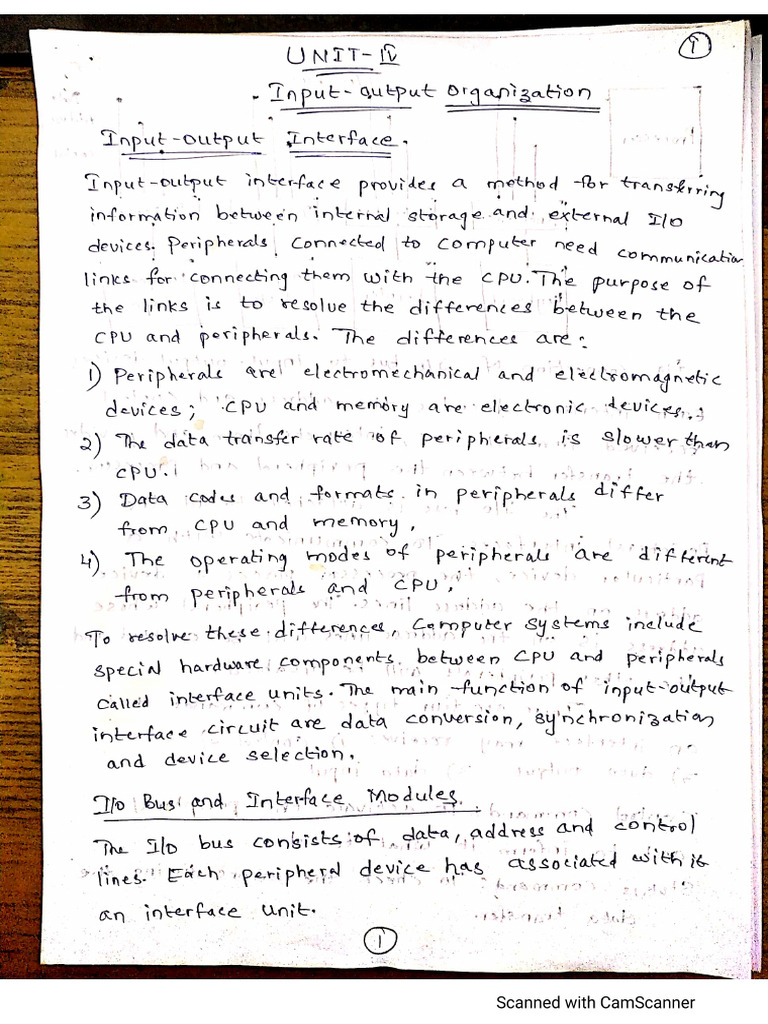 1
UNIT-IV
Input-output organization
Input-output Interface.
Input-output interface provides a method for transferring
information between internal storage and external I/O
devices. Peripherals connected to computer need communication
links for connecting them with the CPU. The purpose of
the links is to resolve the differences between the
CPU and peripherals. The differences are:
1) Peripherals are electromechanical and electromagnetic
devices; CPU and memory are electronic devices.
2) The data transfer rate of peripherals is slower than
CPU.
3) Data codes and formats in peripherals differ
from CPU and memory.
4) The operating modes of peripherals are different
from peripherals and CPU.
To resolve these differences, computer systems include
special hardware components between CPU and peripherals
called interface units. The main function of input-output
interface circuit are data conversion, synchronization
and device selection.
I/O Bus and Interface Modules
The I/O bus consists of data, address and control
lines. Each peripheral device has associated with it
an interface unit.
1
Scanned with CamScanner